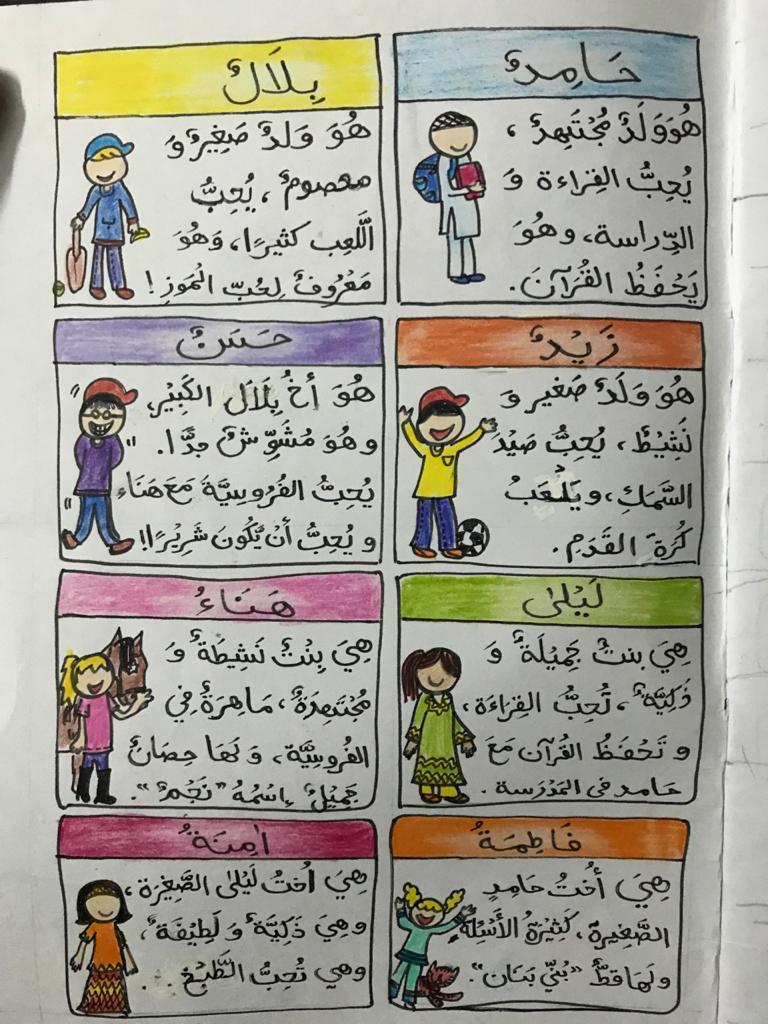 حَامِدٌ
هُوَ وَلَدٌ مُجْتَهِدٌ ،
يُحِبُّ القِرَاءة وَ
الدِّراسة، وهُوَ
يَحْفَظُ القُرْآنَ.
بِلَالٌ
هُوَ وَلَدٌ صَغِيرٌ وَ
معصومٌ ، يُحِبُّ
اللَّعِب كَثيرًا، وَهُوَ
مَعْرُوفٌ لِحُبِّ الْمَوزِ!
زَيْدٌ
هُوَ وَلَدٌ صَغير وَ
نَشِيْطٌ، يُحِبُّ صَيْدَ
السَّمَكِ، و يَلْعَبُ
كُرَةَ القَدَمِ.
حَسَنٌ
هُوَ أخُ بِلَالَ الكَبِيْر،
و هُوَ مُشَوِّشٌ جِدًّا.
يُحِبُّ الفُرُوسِيَّةَ مَعَ هَنَاء
و يُحِبُّ أنْ يَّكُونَ شَرِيْرًا!!
لَيْلىٰ
هِيَ بنتٌ جَمِيْلَةٌ وَ
ذَكِيَّةٌ، تُحِبُّ القِرَاءَة،
و تَحْفَظُ القُرآن مَعَ
حَامِد في المَدْرَسة.
هَنَاءُ
هِيَ بِنْتٌ نَشِيطَةٌ وَ
مُجْتَهِدَةٌ، مَاهِرَةٌ فِي
الفُروسِيَّة، وَ لَهَا حِصَانٌ
جَمِيْلٌ إسْمُهُ "نَجْمٌ".
فَاطِمَةُ
هِيَ أُخْتُ حَامِدٍ
الصَّغِيرة، كَثِيْرَةُ الأَسْئِلَة
و لَهَا قطٌّ "بُنّي بَنَان".
اٰمِنَةُ
هِيَ اُختُ لَيْلىٰ الصَّغِيْرَة،
و هِيَ ذَكِيَّةٌ وَ لَطِيْفَةٌ،
وهي تُحِبُّ الطَّبْخ...